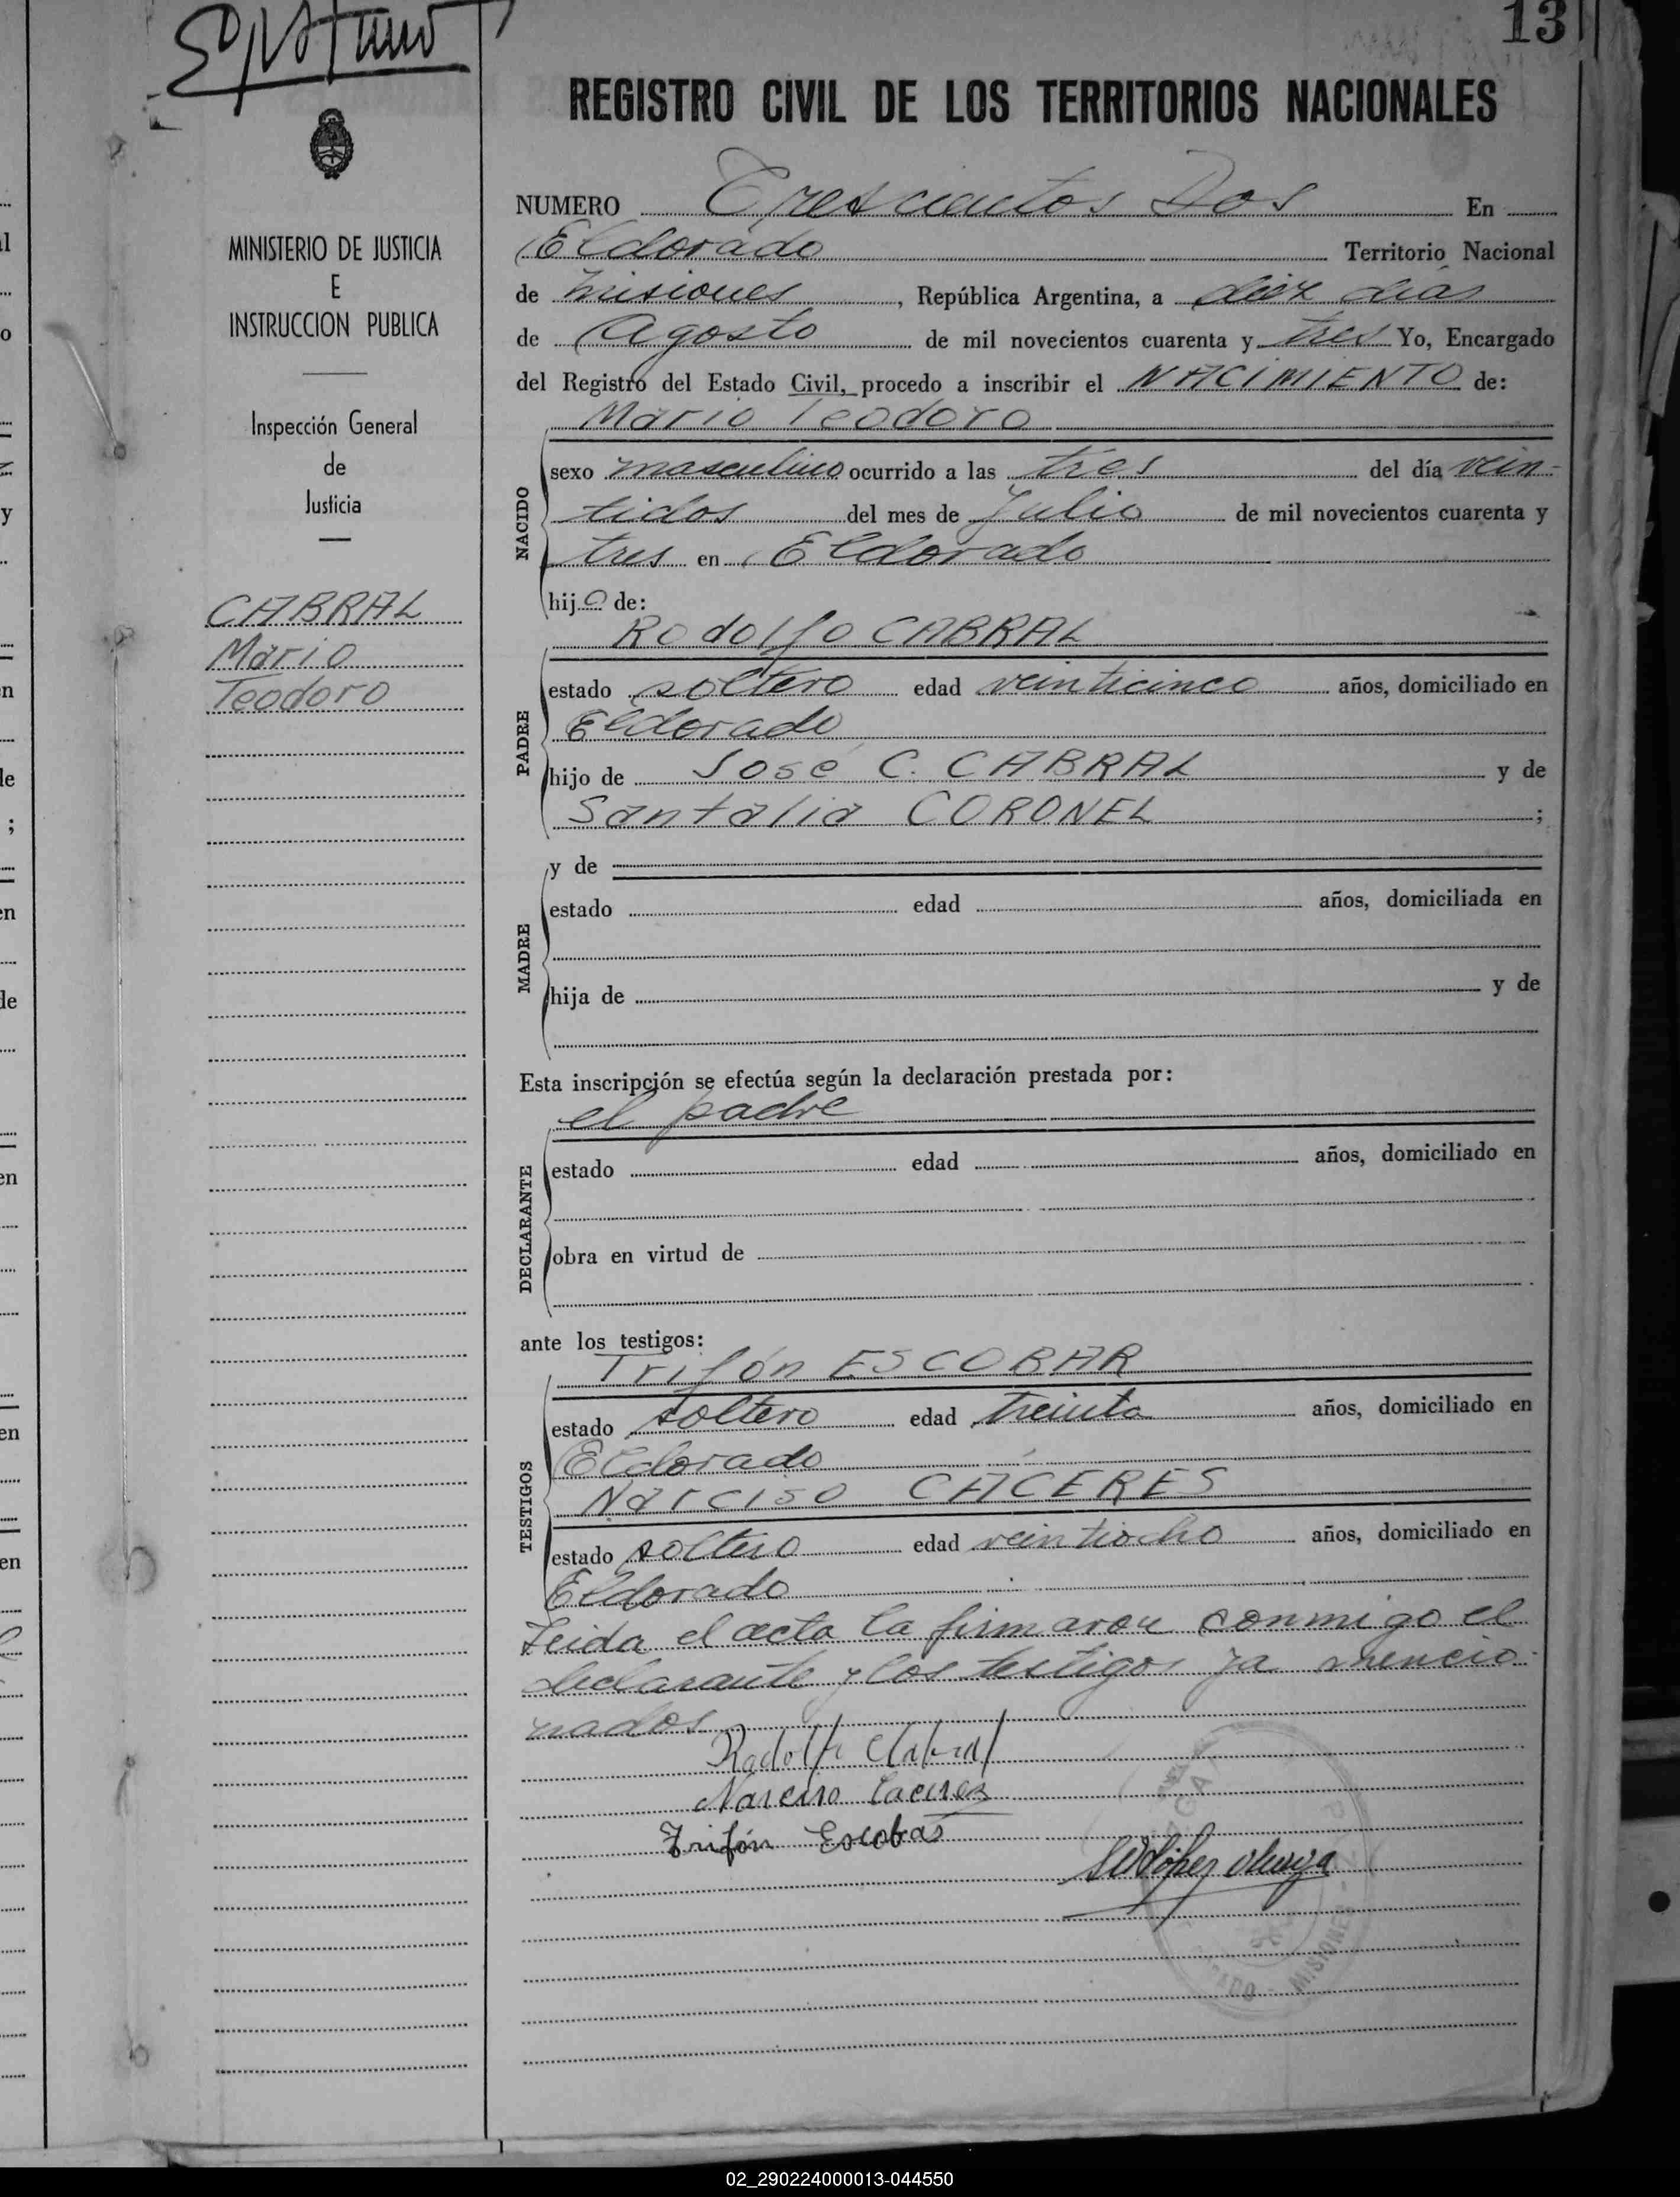 13
REGISTRO CIVIL DE LOS TERRITORIOS NACIONALES
MINISTERIO DE JUSTICIA
E
INSTRUCCION PUBLICA
Inspección General
de
Justicia
CABRAL
Mario
Teodoro
NUMERO Trescientos Dos En
Eldorado Territorio Nacional
de Misiones, República Argentina, a diez días
de Agosto de mil novecientos cuarenta y tres Yo, Encargado
del Registro del Estado Civil, procedo a inscribir el NACIMIENTO de:
Mario Teodoro
NACIDO
sexo masculino ocurrido a las tres del día vein-
tidos del mes de Julio de mil novecientos cuarenta y
tres en Eldorado
hijo de:
Rodolfo CABRAL
PADRE
estado soltero edad veinticinco años, domiciliado en
Eldorado
hijo de José C. CABRAL y de
Santalia CORONEL ;
y de
MADRE
estado edad años, domiciliada en
hija de y de
Esta inscripción se efectúa según la declaración prestada por:
el padre
DECLARANTE
estado edad años, domiciliado en
obra en virtud de
ante los testigos:
Trifón ESCOBAR
TESTIGOS
estado soltero edad treinta años, domiciliado en
Eldorado
Narciso CACERES
estado soltero edad veintiocho años, domiciliado en
Eldorado
Leida el acta la firmaron conmigo el
declarante y los testigos ya mencio-
nados
Rodolfo Cabral
Narciso Caceres
Trifón Escobar
MISIONES
02_290224000013-044550